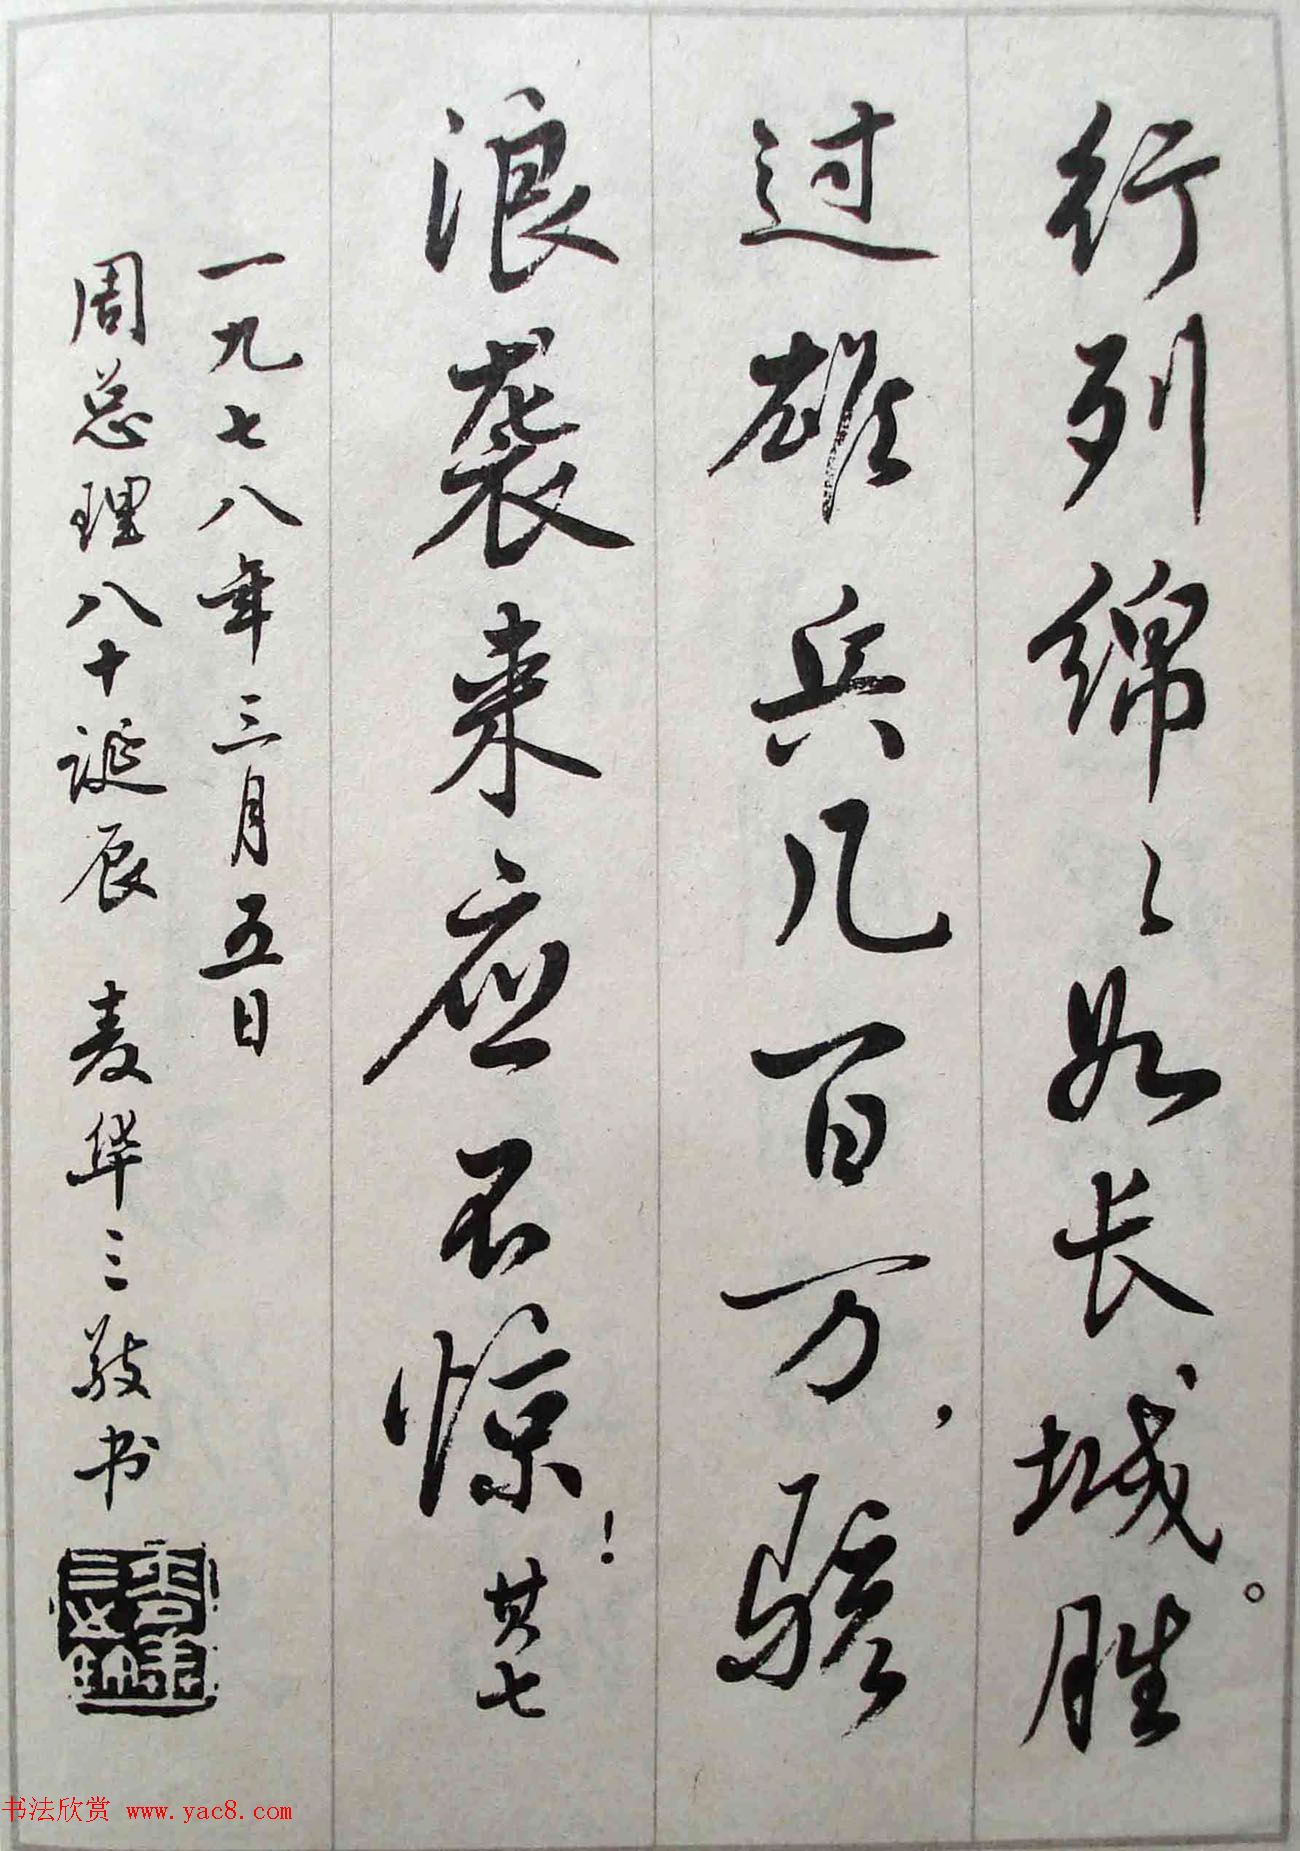 行列绵々如长城。胜
过雄兵几百万，骇
浪袭来应不惊！其七
一九七八年三月五日
周总理八十诞辰 麦华三敬书
书法欣赏 www.yac8.com